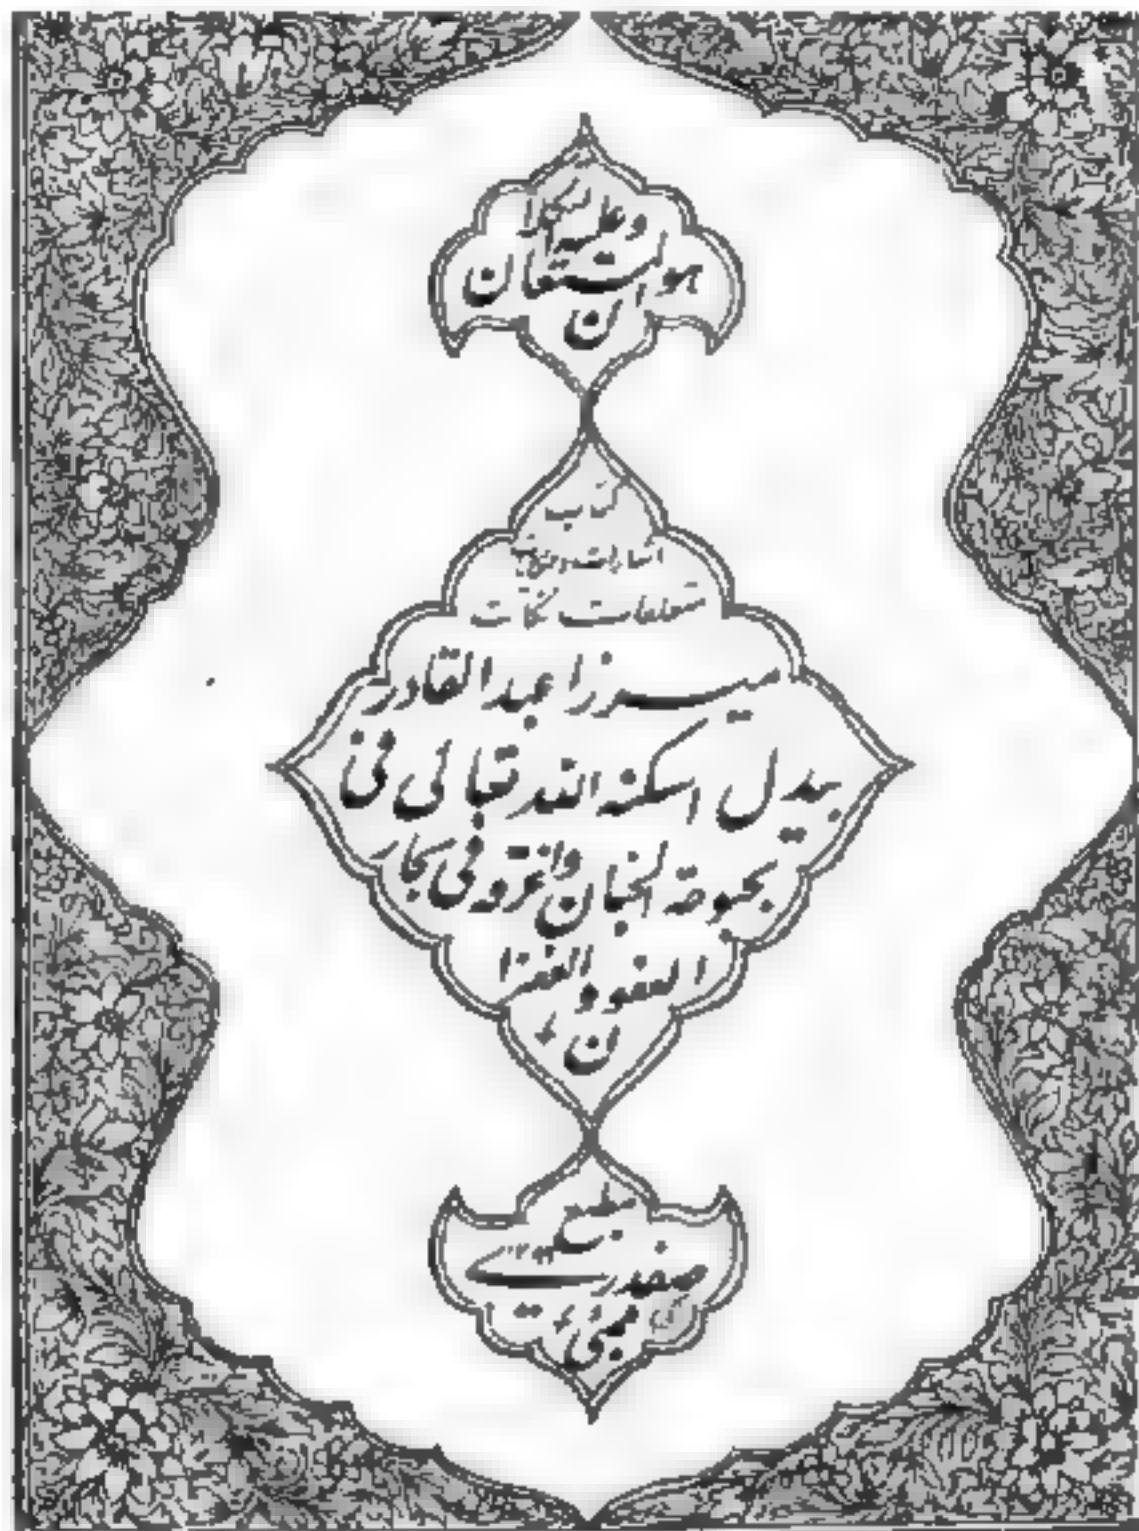 هو المستعان
وعلیه التکلان
کتاب
متعلقات نکات
میرزا عبدالقادر
بیدل اسکنه الله تعالی فی
بحبوحة الجنان واغرقه فی بحار
العفو والغفرا
ن
مطبع
صفدرے
بمبئی